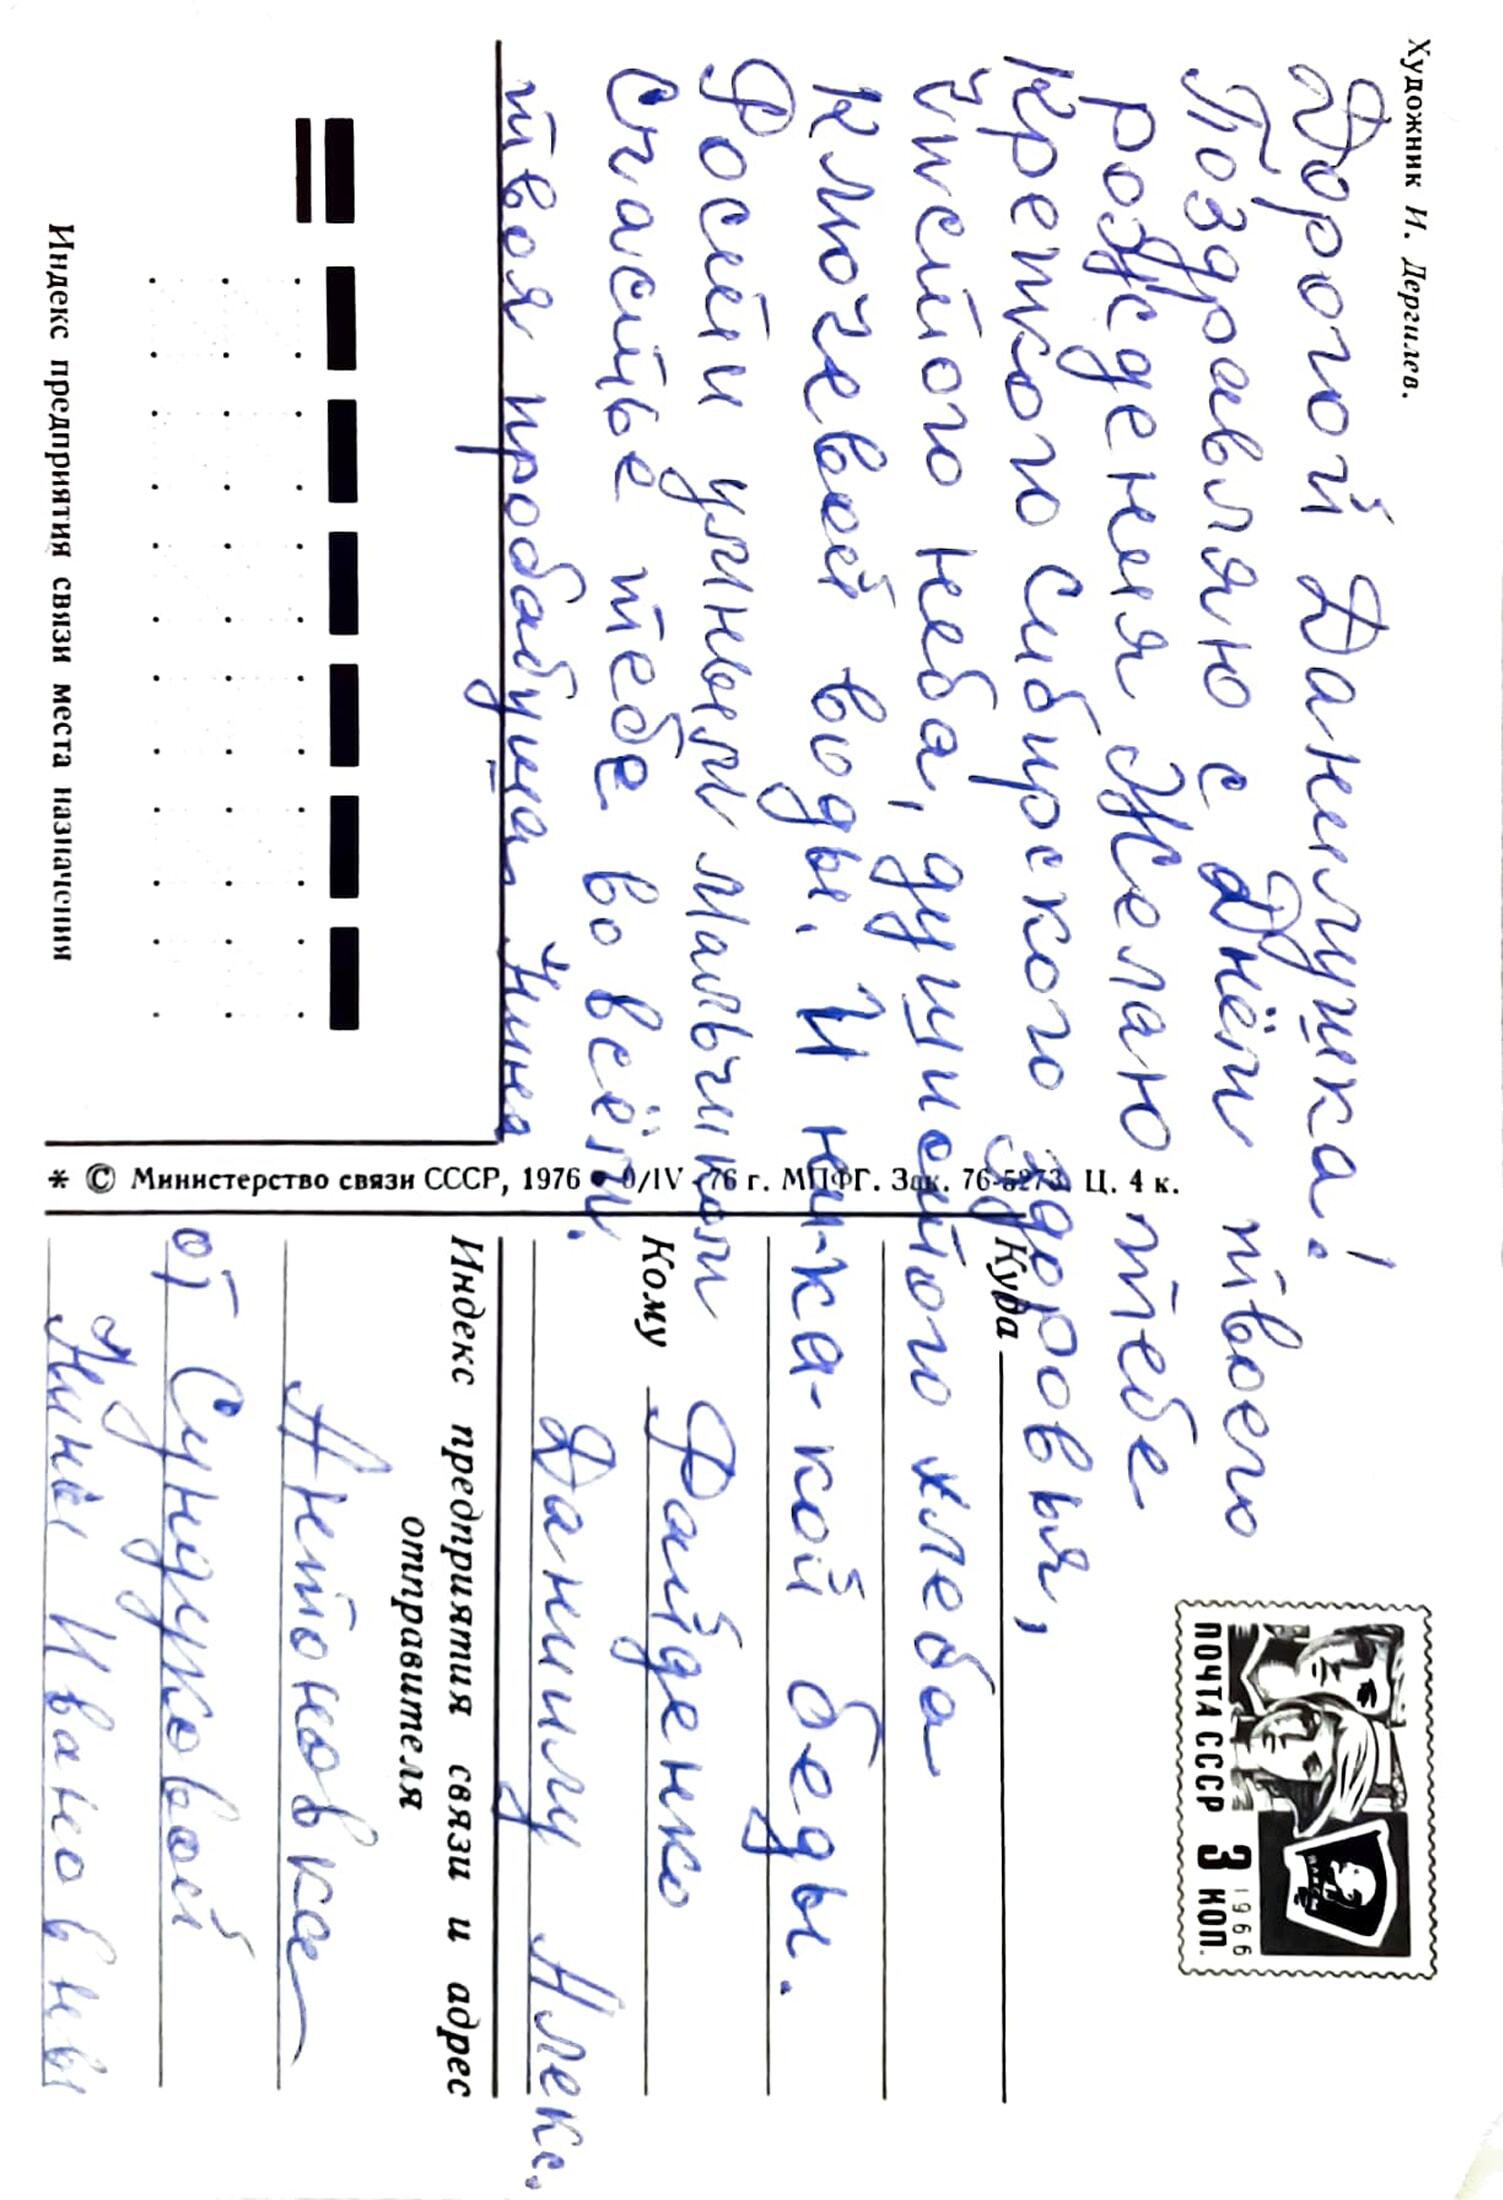 Художник И. Дергилев.
Дорогой Данилушка!
Поздравляю с Днём твоего
рождения Желаю тебе
крепкого сибирского здоровья,
чистого неба, душистого хлеба
ключевой воды. И ни-ка-кой беды.
Рости умным мальчиком
Счастье тебе во всём.
твоя прабабушка Нина
Индекс предприятия связи места назначения
* © Министерство связи СССР, 1976 9/IV 76 г. МПФГ. Зак. 76-5273. Ц. 4 к.
ПОЧТА СССР 3 КОП.
1966
Куда
Кому Файденко
Даниилу Алекс.
Индекс предприятия связи и адрес
отправителя
Антоновка
от Сундуковой
Нины Ивановны